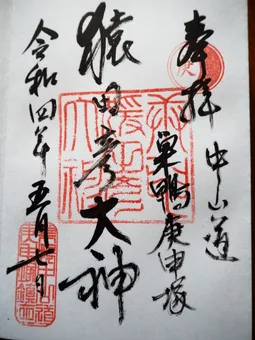 奉拝
中山道
巣鴨庚申塚
猿田彦大神
令和四年五月七日